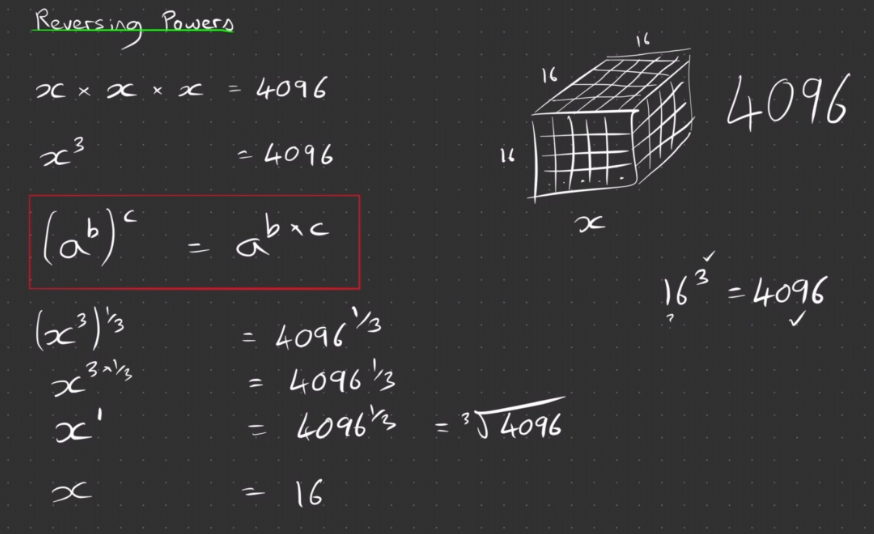 Reversing Powers
x × x × x = 4096
x³ = 4096
(a^b)^c = a^(b×c)
(x³)^1/3 = 4096^1/3
x^3×1/3 = 4096^1/3
x¹ = 4096^1/3 = ³√4096
x = 16
16
16
16
x
4096
16³ ✓ = 4096
? ✓